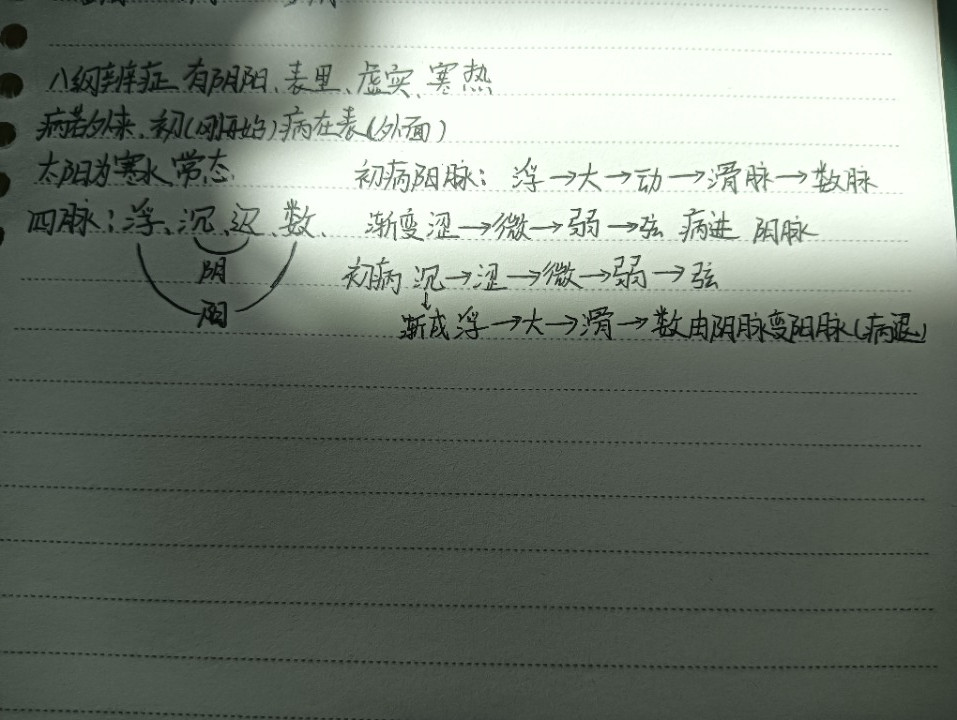 八纲辨症、有阴阳、表里、虚实、寒热
病若外来、初(刚开始)病在表(外面)
太阳为寒水常态
初病阳脉:浮→大→动→滑脉→数脉
四脉:浮、沉、迟、数、
渐变涩→微→弱→弦 病进 阴脉
阴
初病 沉→涩→微→弱→弦
阳
↓
渐成浮→大→滑→数由阴脉变阳脉(病退)